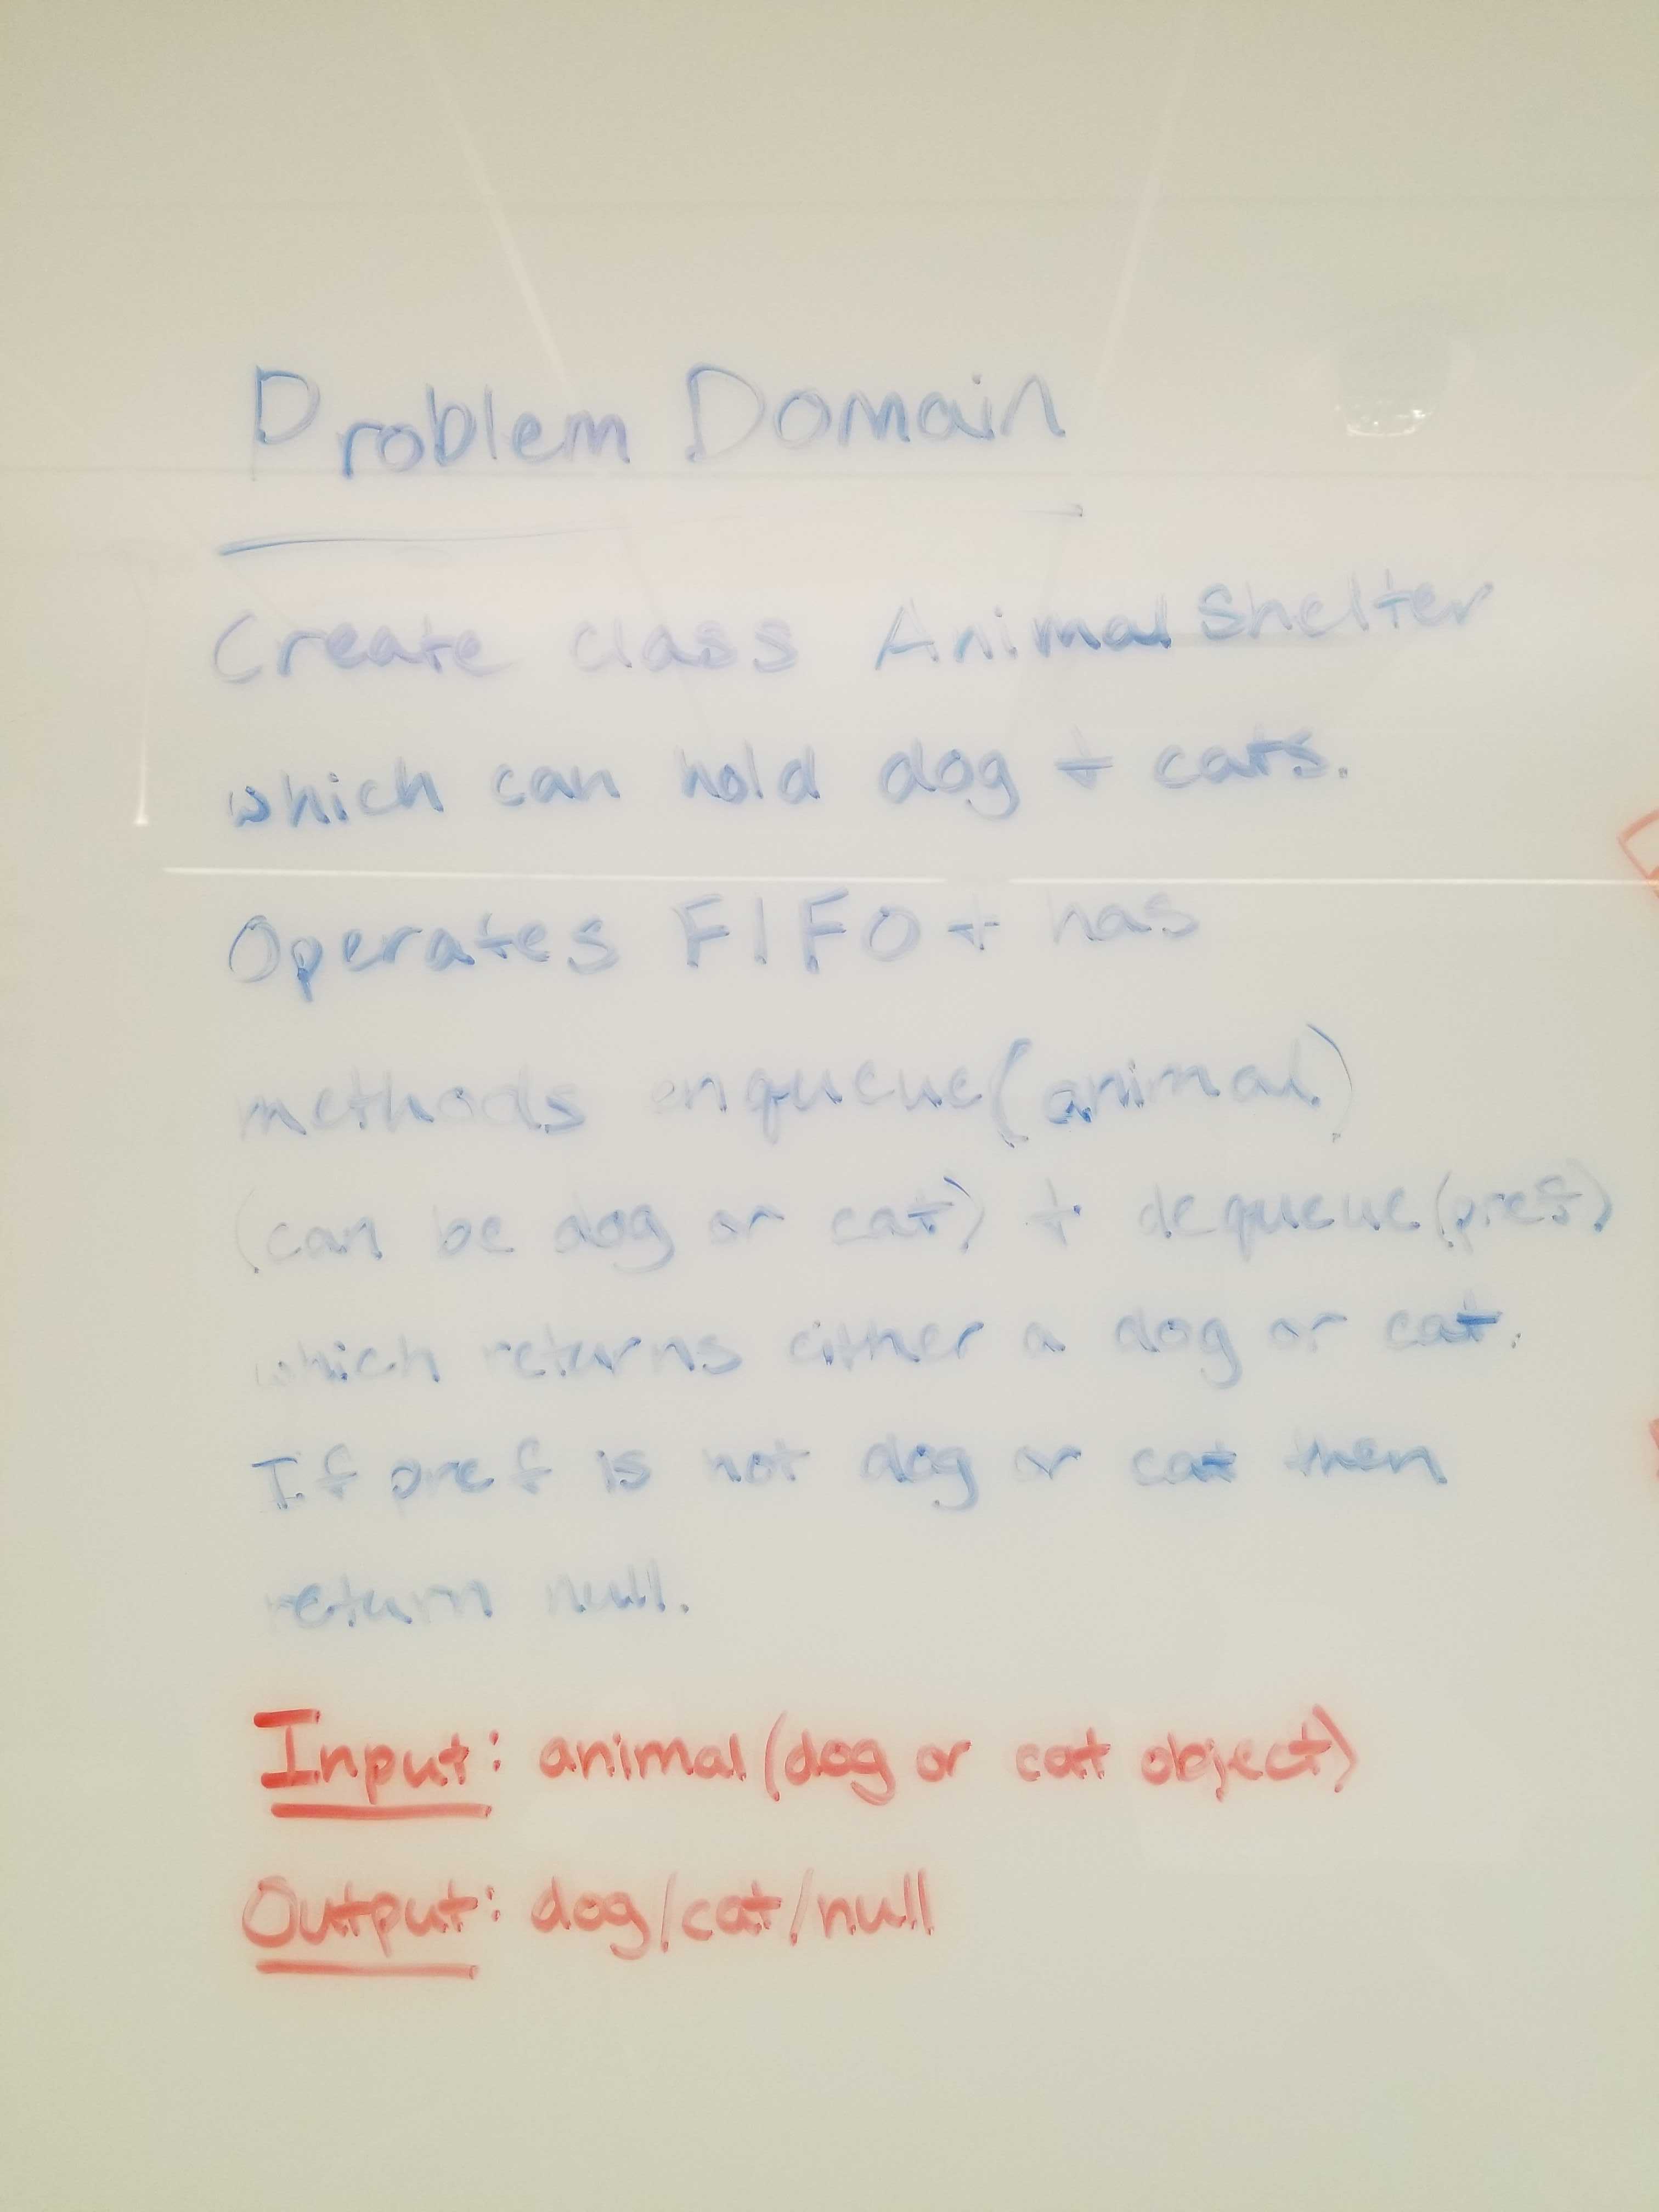 Problem Domain
Create class AnimalShelter
which can hold dog + cats.
Operates FIFO + has
methods enqueue(animal)
(can be dog or cat) + dequeue(pref)
which returns either a dog or cat.
If pref is not dog or cat then
return null.
Input: animal(dog or cat object)
Output: dog/cat/null